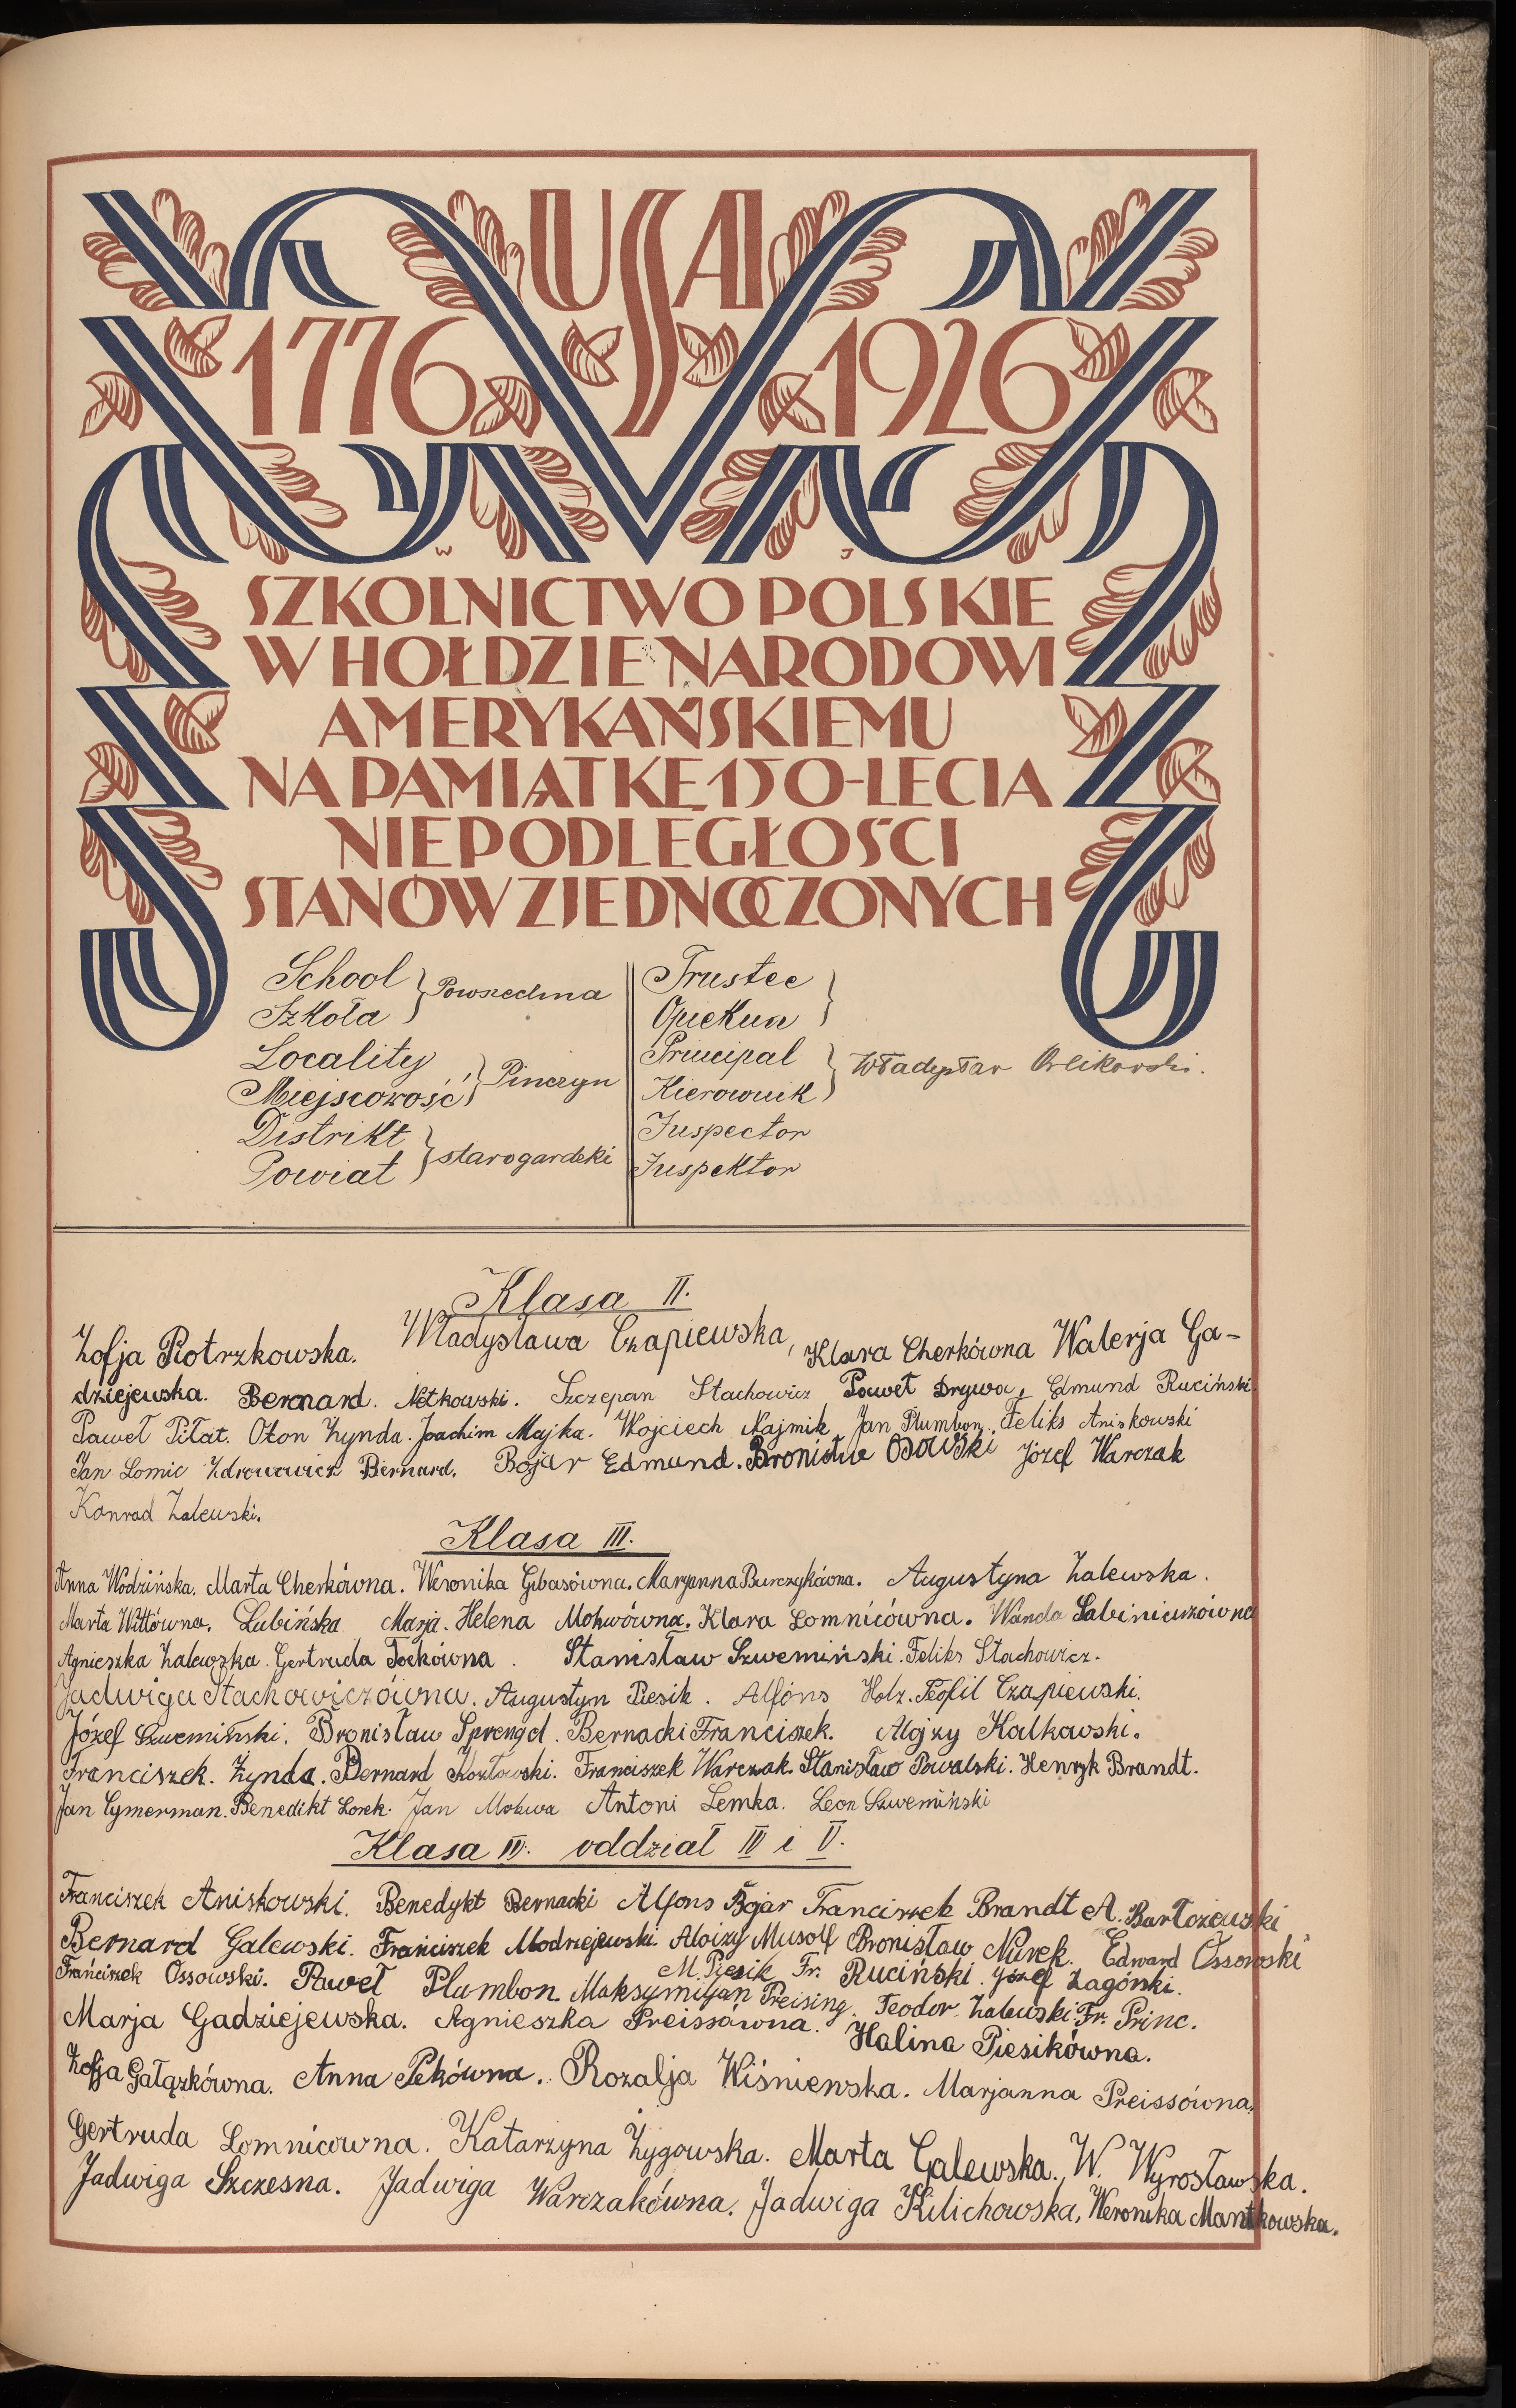 USA
1776 1926
W J
SZKOLNICTWO POLSKIE
W HOŁDZIE NARODOWI
AMERYKAŃSKIEMU
NA PAMIĄTKĘ 150-LECIA
NIEPODLEGŁOŚCI
STANÓW ZJEDNOCZONYCH
School
Szkoła } Powszechna
Locality
Miejscowość } Pinczyn
Distrikt
Powiat } starogardzki
Trustee
Opiekun }
Principal
Kierownik } Władysław Orlikowski.
Inspector
Inspektor
Klasa II.
Zofja Piotrzkowska. Władysława Czapiewska, Klara Cherkówna Walerja Ga-
dziejewska. Bernard. Netkowski. Szczepan Stachowicz Paweł Drywa, Edmund Ruciński.
Paweł Piłat. Oton Zynda. Joachim Majka. Wojciech Najmik Jan Plumbon. Feliks Aniskowski
Jan Lomic Zdrowowicz Bernard. Bojar Edmund. Bronisław Osowski Józef Warczak
Konrad Zalewski.
Klasa III.
Anna Wodzińska. Marta Cherkówna. Weronika Gibasówna. Maryanna Burczykówna. Augustyna Zalewska.
Marta Wittówna. Lubińska Marja. Helena Mokwówna. Klara Lomnicówna. Wanda
Agnieszka Zalewska. Gertruda Stanisław Szwemiński. Feliks Stachowicz.
Jadwiga Stachowiczówna. Augustyn Piesik. Alfons Holz. Teofil Czapiewski.
Józef Szwemiński. Bronisław Sprengel. Bernacki Franciszek. Alojzy Kalkowski.
Franciszek. Zynda. Bernard Kozłowski. Franciszek Warczak. Stanisław Powalski. Henryk Brandt.
Jan Cymerman. Benedikt Lorek. Jan Mokwa Antoni Lemka. Leon Szwemiński
Klasa IV. oddział IV i V.
Franciszek Aniskowski. Benedykt Bernacki Alfons Bojar Franciszek Brandt A. Bartożewski
Bernard Galewski. Frańciszek Modrzejewski Aloizy Musolf Bronisław Nurek. Edward Ossowski
Frańciszek Ossowski. Paweł Plumbon M. Piesik Fr. Ruciński. Józef Zagórski.
Maksymiljan Preising. Teodor Zalewski. Fr. Princ.
Marja Gadziejewska. Agnieszka Preissówna. Halina Piesikówna.
Zofja Gałązkówna. Anna Pekówna. Rozalja Wiśniewska. Marjanna Preissówna.
Gertruda Lomnicówna. Katarzyna Żygowska. Marta Galewska. W. Wyrosławska.
Jadwiga Szczesna. Jadwiga Warczakówna. Jadwiga Kilichowska, Weronika Mantkowska.